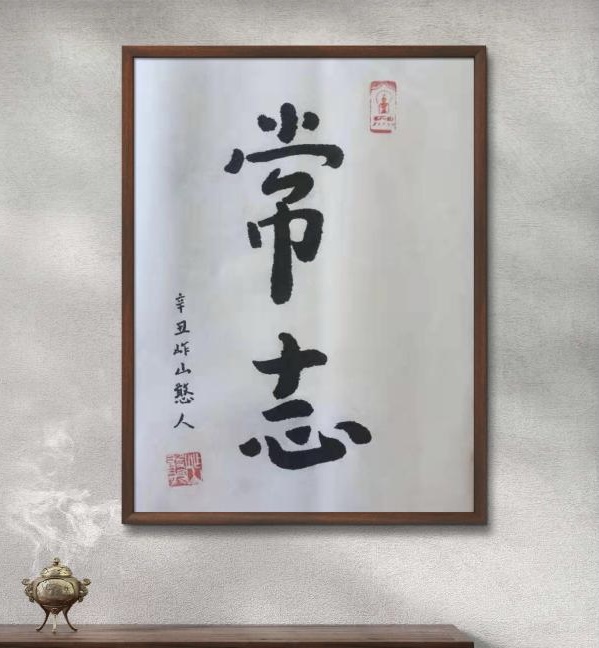 常志
辛丑岞山憨人